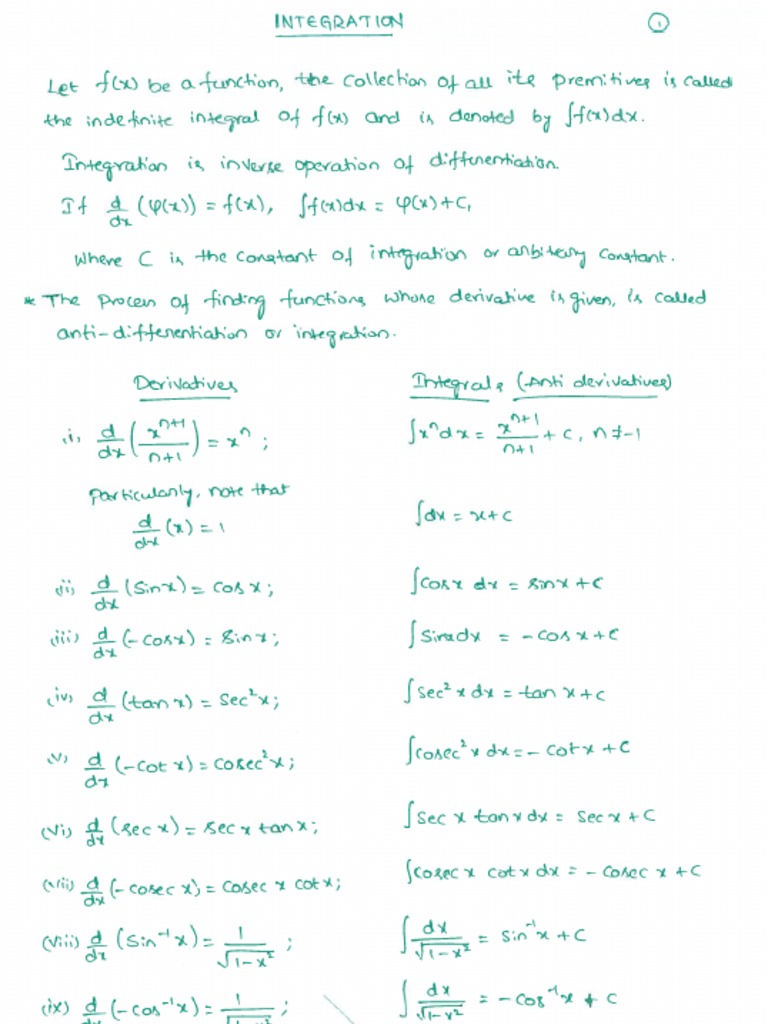 INTEGRATION 1
Let f(x) be a function, the collection of all its premitives is called
the indefinite integral of f(x) and is denoted by ∫f(x)dx.
Integration is inverse operation of differentiation.
If d/dx (φ(x)) = f(x), ∫f(x)dx = φ(x)+C,
where C is the constant of integration or arbitrary constant.
* The process of finding functions whose derivative is given, is called
anti-differentiation or integration.
Derivatives Integrals (Anti derivatives)
(i) d/dx (x^(n+1)/(n+1)) = x^n ; ∫x^n dx = x^(n+1)/(n+1) + C, n ≠ -1
Particularly, note that
d/dx (x) = 1 ∫dx = x+C
(ii) d/dx (Sinx) = Cos x; ∫Cosx dx = sinx + C
(iii) d/dx (-cosx) = Sinx; ∫Sinxdx = -cosx + C
(iv) d/dx (tanx) = Sec²x; ∫Sec²x dx = tan x + C
(v) d/dx (-Cot x) = Cosec²x; ∫Cosec²x dx = - Cotx + C
(vi) d/dx (Sec x) = Sec x tan x; ∫Sec x tanx dx = Sec x + C
(vii) d/dx (-cosec x) = Cosec x Cotx; ∫Cosec x Cotx dx = - Cosec x + C
(viii) d/dx (Sin⁻¹x) = 1/√(1-x²) ; ∫dx/√(1-x²) = Sin⁻¹x + C
(ix) d/dx (-Cos⁻¹x) = 1/√(1-x²) ; ∫dx/√(1-x²) = - Cos⁻¹x + C